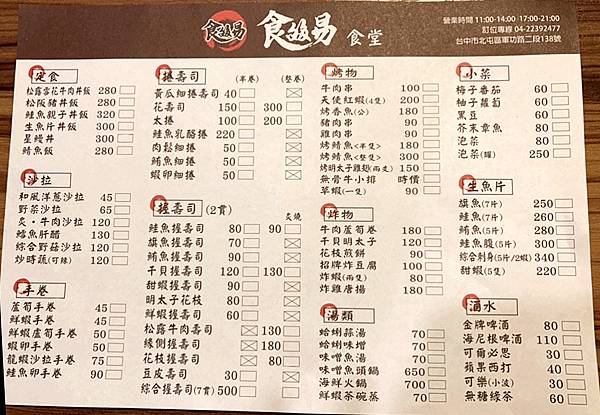 食為易
食為易 食堂
營業時間 11:00-14:00 17:00-21:00
訂位專線 04-22392477
台中市北屯區軍功路二段138號
定食
松露雪花牛肉丼飯 280
松阪豬丼飯 280
鮭魚親子丼飯 320
生魚片丼飯 300
星鰻丼 300
鯖魚飯 280
沙拉
和風洋蔥沙拉 45
野菜沙拉 65
炙·牛肉沙拉 120
鱈魚肝醋 130
綜合野菇沙拉 120
炒時蔬(可辣) 120
手卷
蘆筍手卷 45
鮮蝦手卷 45
鮮蝦蘆筍手卷 50
蝦卵手卷 50
龍蝦沙拉手卷 75
鮭魚卵手卷 90
捲壽司 (半卷) (整卷)
黃瓜細捲壽司 40
花壽司 150 300
太捲 100 200
鮭魚乳酪捲 220
肉鬆細捲 50
鮪魚細捲 50
蝦卵細捲 50
握壽司 (2貫) 炙燒
鮭魚握壽司 80 90
旗魚握壽司 70
鮪魚握壽司 90
干貝握壽司 120 130
甜蝦握壽司 90
明太子花枝 90
鮮蝦握壽司 60
松露牛肉壽司 130
緣側握壽司 180
花枝握壽司 80
豆皮壽司 30
綜合握壽司(7貫) 500
烤物
牛肉串 100
天使紅蝦(4隻) 200
烤香魚(公) 180
豬肉串 90
雞肉串 90
烤鯖魚<半隻> 90
烤鯖魚<整隻> 300
烤明太子雞翅(兩支) 150
無骨牛小排 時價
草蝦(一隻) 90
炸物
牛肉蘆筍卷 180
干貝明太子 120
花枝煎餅 90
招牌炸豆腐 100
炸蝦(兩隻) 180
炸雞唐揚 180
湯類
蛤蜊蒜湯 70
蛤蜊味增 70
味噌魚湯 70
味噌魚頭鍋 650
海鮮火鍋 700
鮮蝦茶碗蒸 70
小菜
梅子番茄 60
柚子蘿蔔 60
黑豆 60
芥末章魚 80
泡菜 80
泡菜(罐) 250
生魚片
旗魚(7片) 250
鮭魚(7片) 260
鮪魚(5片) 280
鮭魚腹(5片) 300
綜合刺身(5片/2蝦) 340
甜蝦(5隻) 220
酒水
金牌啤酒 80
海尼根啤酒 110
可爾必思 30
蘋果西打 40
可樂(小波) 30
無糖綠茶 60